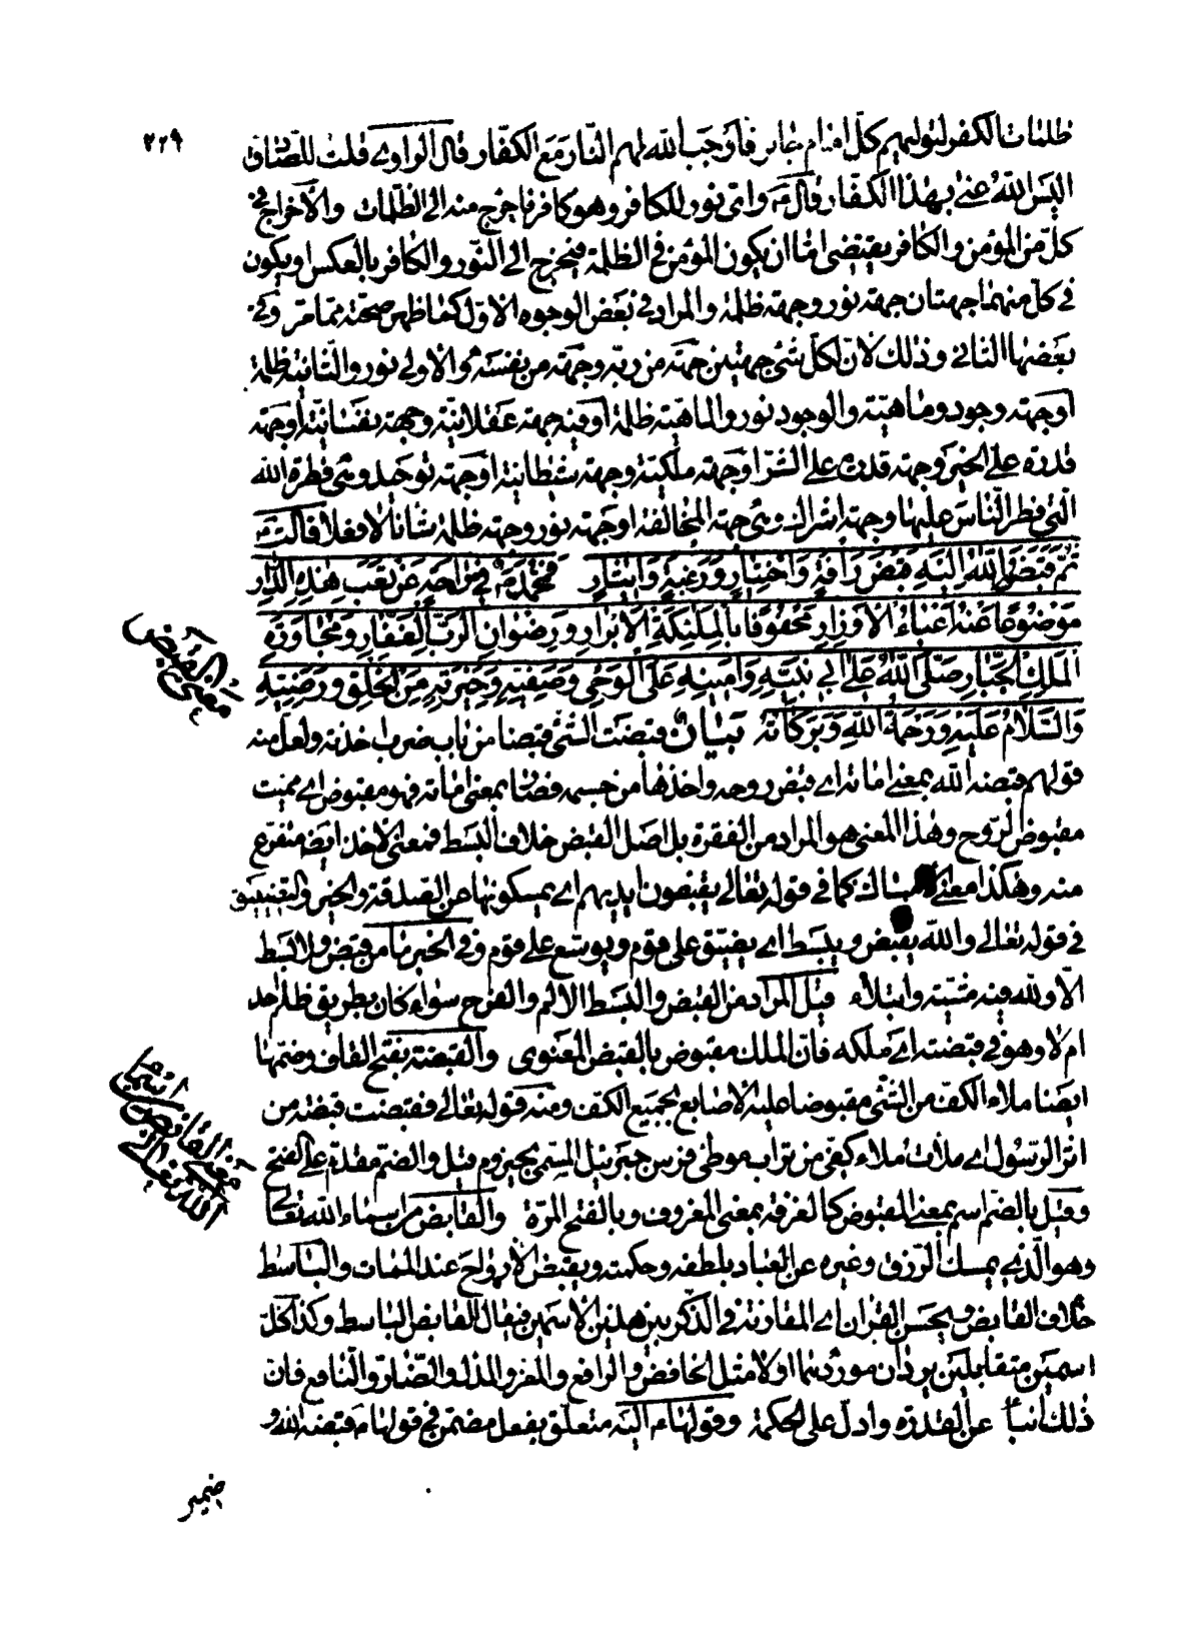 ٢٢٩
ظلمات الكفر لتوليهم كلّ امام جائر فأوجب الله لهم النّار مع الكفّار قال الراوي قلت للصّادق
اليس الله عنى بهذا الكفّار قال ع وايّ نور للكافر وهو كافر فاخرج منه الى الظّلمات والأخراج في
كلّ من المؤمن والكافر يقتضي امّا ان يكون المؤمن في الظلمة فيخرج الى النّور والكافر بالعكس او يكون
في كلّ منهما جهتان جهة نور وجهة ظلمة والمراد في بعض الوجوه الاوّل كما ظهر صحّته ممّا مرّ وفي
بعضها الثاني وذلك لانّ لكلّ شئ جهتين جهة من ربّه وجهة من نفسه والاولى نور والثّانية ظلمة
او جهة وجود وماهيّة والوجود نور والماهيّة ظلمة او فيه جهة عقلانيّة وجهة نفسانيّة او جهة
قدرة على الخير وجهة قدرة على الشرّ او جهة ملكيّة وجهة شيطانيّة او جهة توحيد وهي فطرة الله
الّتي فطر النّاس عليها وجهة اشراك وهي جهة المخالفة او جهة نور وجهة ظلمة شأنا لا فعلا قالت ع
ثمّ قبضه الله اليه قبض رأفة واختيار ورغبة وايثار فمحمّد ص في راحة عن تعب هذه الدّار
موضوعًا عنه اعباء الأوزار محفوفًا بالملئكة الأبرار ورضوان الربّ الغفّار ومجاورة
الملك الجبّار صلّى الله على ابي نبيّه وامينه على الوحي وصفيّه وخيرته من الخلق ورضيّه
والسّلام عليه ورحمة الله وبركاته بيان قبضت الشّئ قبضا من باب ضرب اخذته ولعلّ منه
قولهم قبضه الله بمعنى اماته اي قبض روحه واخذها من جسمه فصار بمعنى اماته فهو مقبوض اي مميت
مقبوض الرّوح وهذا المعنى هو المراد من الفقرة بل اصل القبض خلاف البسط فمعنى الاخذ ايضا متفرّع
منه وهكذا معنى الامساك كما في قوله تعالى يقبضون ايديهم اي يمسكونها عن الصدقة والخير والتضييق
في قوله تعالى والله يقبض ويبسط اي يضيّق على قوم ويوسّع على قوم وفي الخبر ما من قبض ولا بسط
الّا ولله فيه مشيّة وابتلاء قيل المراد من القبض والبسط الألم والفرح سواء كان بطريق ظلم احد
ام لا وهو في قبضته اي ملكه فانّ الملك مقبوض بالقبض المعنوى والقبضة بفتح القاف وضمّها
ايضا ملاء الكفّ من الشّئ مقبوضا عليه الاصابع بجميع الكفّ ومنه قوله تعالى فقبضت قبضة من
اثر الرّسول اي ملأت ملاء كفّي من تراب موطئ فرس جبرئيل المسمّى بحيزوم قيل والضمّ مقدّم على الفتح
وقيل بالضّم اسم بمعنى المقبوض كالغرفة بمعنى المغروف وبالفتح المرّة والقابض من اسماء الله تعالى
وهو الّذي يمسك الرّزق وغيره عن العباد بلطفه وحكمته ويقبض الأرواح عند الممات والباسط
خلاف القابض ويحسن القران اي المقارنة في الذّكر بين هذين الاسمين فيقال القابض الباسط وكذا كلّ
اسمين متقابلين يردان موردهما اولا مثل الخافض والرافع والمعزّ والمذلّ والضّارّ والنّافع فانّ
ذلك انبأ عن القدرة وادلّ على الحكمة وقولها ع اليه متعلّق بفعل مضمّن في قولها ع قبضه الله و
ضمير
معنى القبض
معنى القابض من
اسماء
الله تعالى